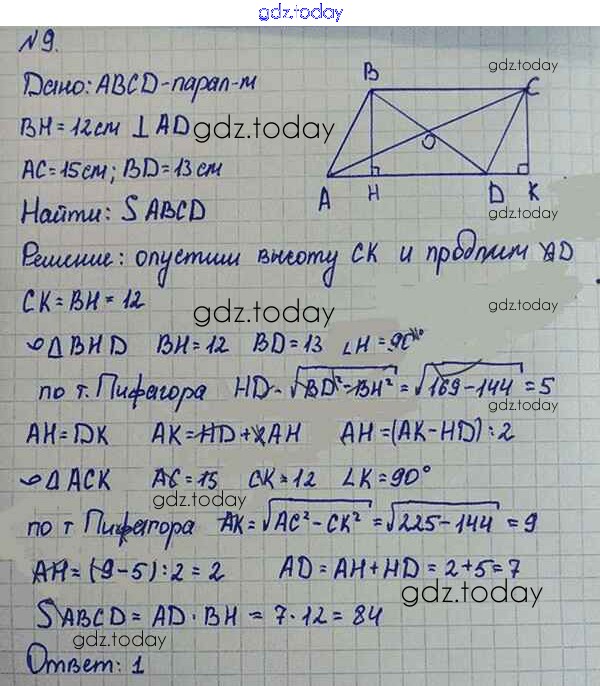 gdz.today
№9.
gdz.today
Дано: ABCD-парал-м
B
C
BH=12см ⊥ AD
gdz.today
O
AC=15см; BD=13см
A H D K
Найти: S ABCD
gdz.today
Решение: опустим высоту CK и продлим AD
CK=BH=12
gdz.today
△BHD BH=12 BD=13 ∠H=90°
по т. Пифагора HD=√BD²-BH²=√169-144=5
gdz.today
AH=DK AK=HD+2AH AH=(AK-HD):2
△ACK AC=15 CK=12 ∠K=90°
gdz.today
по т Пифагора AK=√AC²-CK²=√225-144=9
gdz.today
AH=(9-5):2=2 AD=AH+HD=2+5=7
gdz.today
S ABCD=AD·BH=7·12=84
gdz.today
Ответ: 1